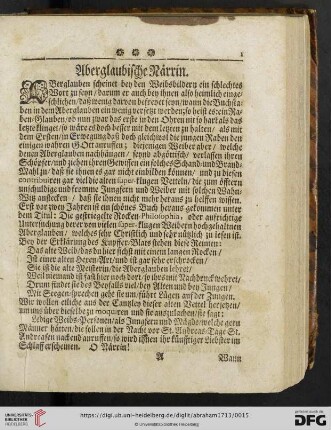 1
Aberglaubische Närrin.
ABerglauben scheinet bey den Weibsbildern ein schlechtes
Wort zu seyn / darum er auch bey ihnen also heimlich einge-
schlichen / daß wenig darvon befreyet seyn / wann die Buchsta-
ben in dem Aberglauben ein wenig versetzt werden / so heist es: ein Ra-
ben-Glauben, ob nun zwar das erste in den Ohren nit so hart als das
letzte klinget / so wäre es doch besser mit dem letztern zu halten / als mit
dem Ersten / in Erwegung daß doch gleichwol die jungen Raben den
einigen wahren GOtt anruffen; diejenigen Weiber aber / welche
denen Aberglauben nachhängen / seynd abgöttisch / verlassen ihren
Schöpfer / und ziehen ihren Gewissen ein solches Schand- und Brand-
Mahl zu / daß sie ihnen es gar nicht einbilden können / und zu diesen
gar viel die alten super-klugen Vetteln / die zum öfftern
unschuldige und fromme Jungfern und Weiber mit solchen Wahn-
Witz anstecken / daß sie ihnen nicht mehr heraus zu helffen wissen.
Erst vor zwey Jahren ist ein schönes Buch heraus gekommen unter
dem Titul: Die gestriegelte Rocken-Philosophia, oder auffrichtige
Untersuchung derer von vielen super-klugen Weibern hochgehaltnen
Aberglauben / welches sehr Christlich und sehr nützlich zu lesen ist.
Bey der Erklärung des Kupffer-Blats stehen diese Reimen:
Das alte Weib / das da hier sitzt mit einem langen Rocken /
Ist einer alten Heren Art / und ist gar sehr erschrocken /
Sie ist die alte Meisterin / die Aberglauben lehret /
Weil niemand ist fast hier noch dort / so ihr mit Nachdruck wehret /
Drum findet sie des Beyfalls viel / bey Alten und bey Jungen,
Mit Seegensprechen geht sie um / führt Lügen auf der Zungen,
Wir wollen etliche aus der Cantzley dieser alten Vettel herziehen /
um uns über dieselbe zu moquiren und sie auszulachen / sie sagt:
Ledige Weibs-Personen / als Jungfern und Mägde / welche gern
Männer hätten / die sollen in der Nacht vor St. Andreas-Tage St.
Andreasen nackend anruffen / so wird ihnen ihr künfftiger Liebster im
Schlaff erscheinen. O Närrin!
A
Wann
UNIVERSITÄTS-
BIBLIOTHEK
HEIDELBERG
https://digi.ub.uni-heidelberg.de/diglit/abrahzm1713/0015
© Universitätsbibliothek Heidelberg
UNIVERSITÄTS-
BIBLIOTHEK
HEIDELBERG